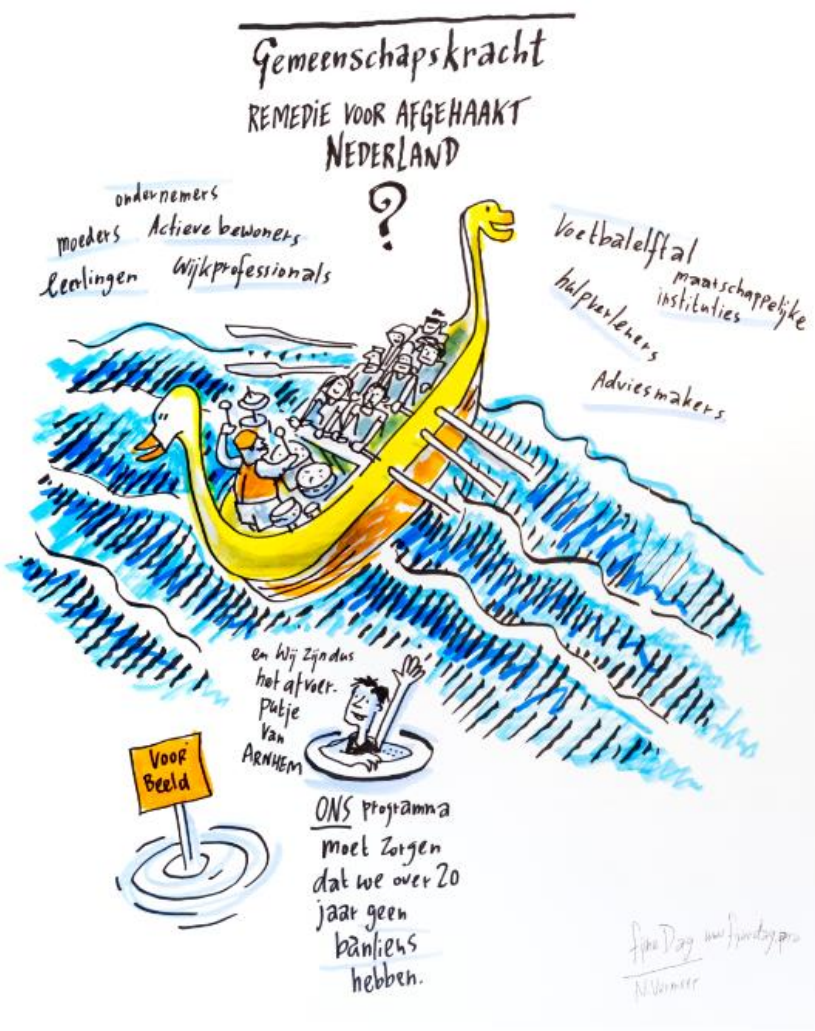 Gemeenschapskracht
REMEDIE VOOR AFGEHAAKT
NEDERLAND
?
ondernemers
moeders Actieve bewoners
leerlingen Wijkprofessionals
Voetbalelftal
maatschappelijke
instituties
hulpverleners
Adviesmakers
en wij zijn dus
het afvoer-
putje
van
ARNHEM
VOOR
Beeld
ONS programma
moet zorgen
dat we over 20
jaar geen
banliens
hebben.
fijne Dag
N. Vermeer